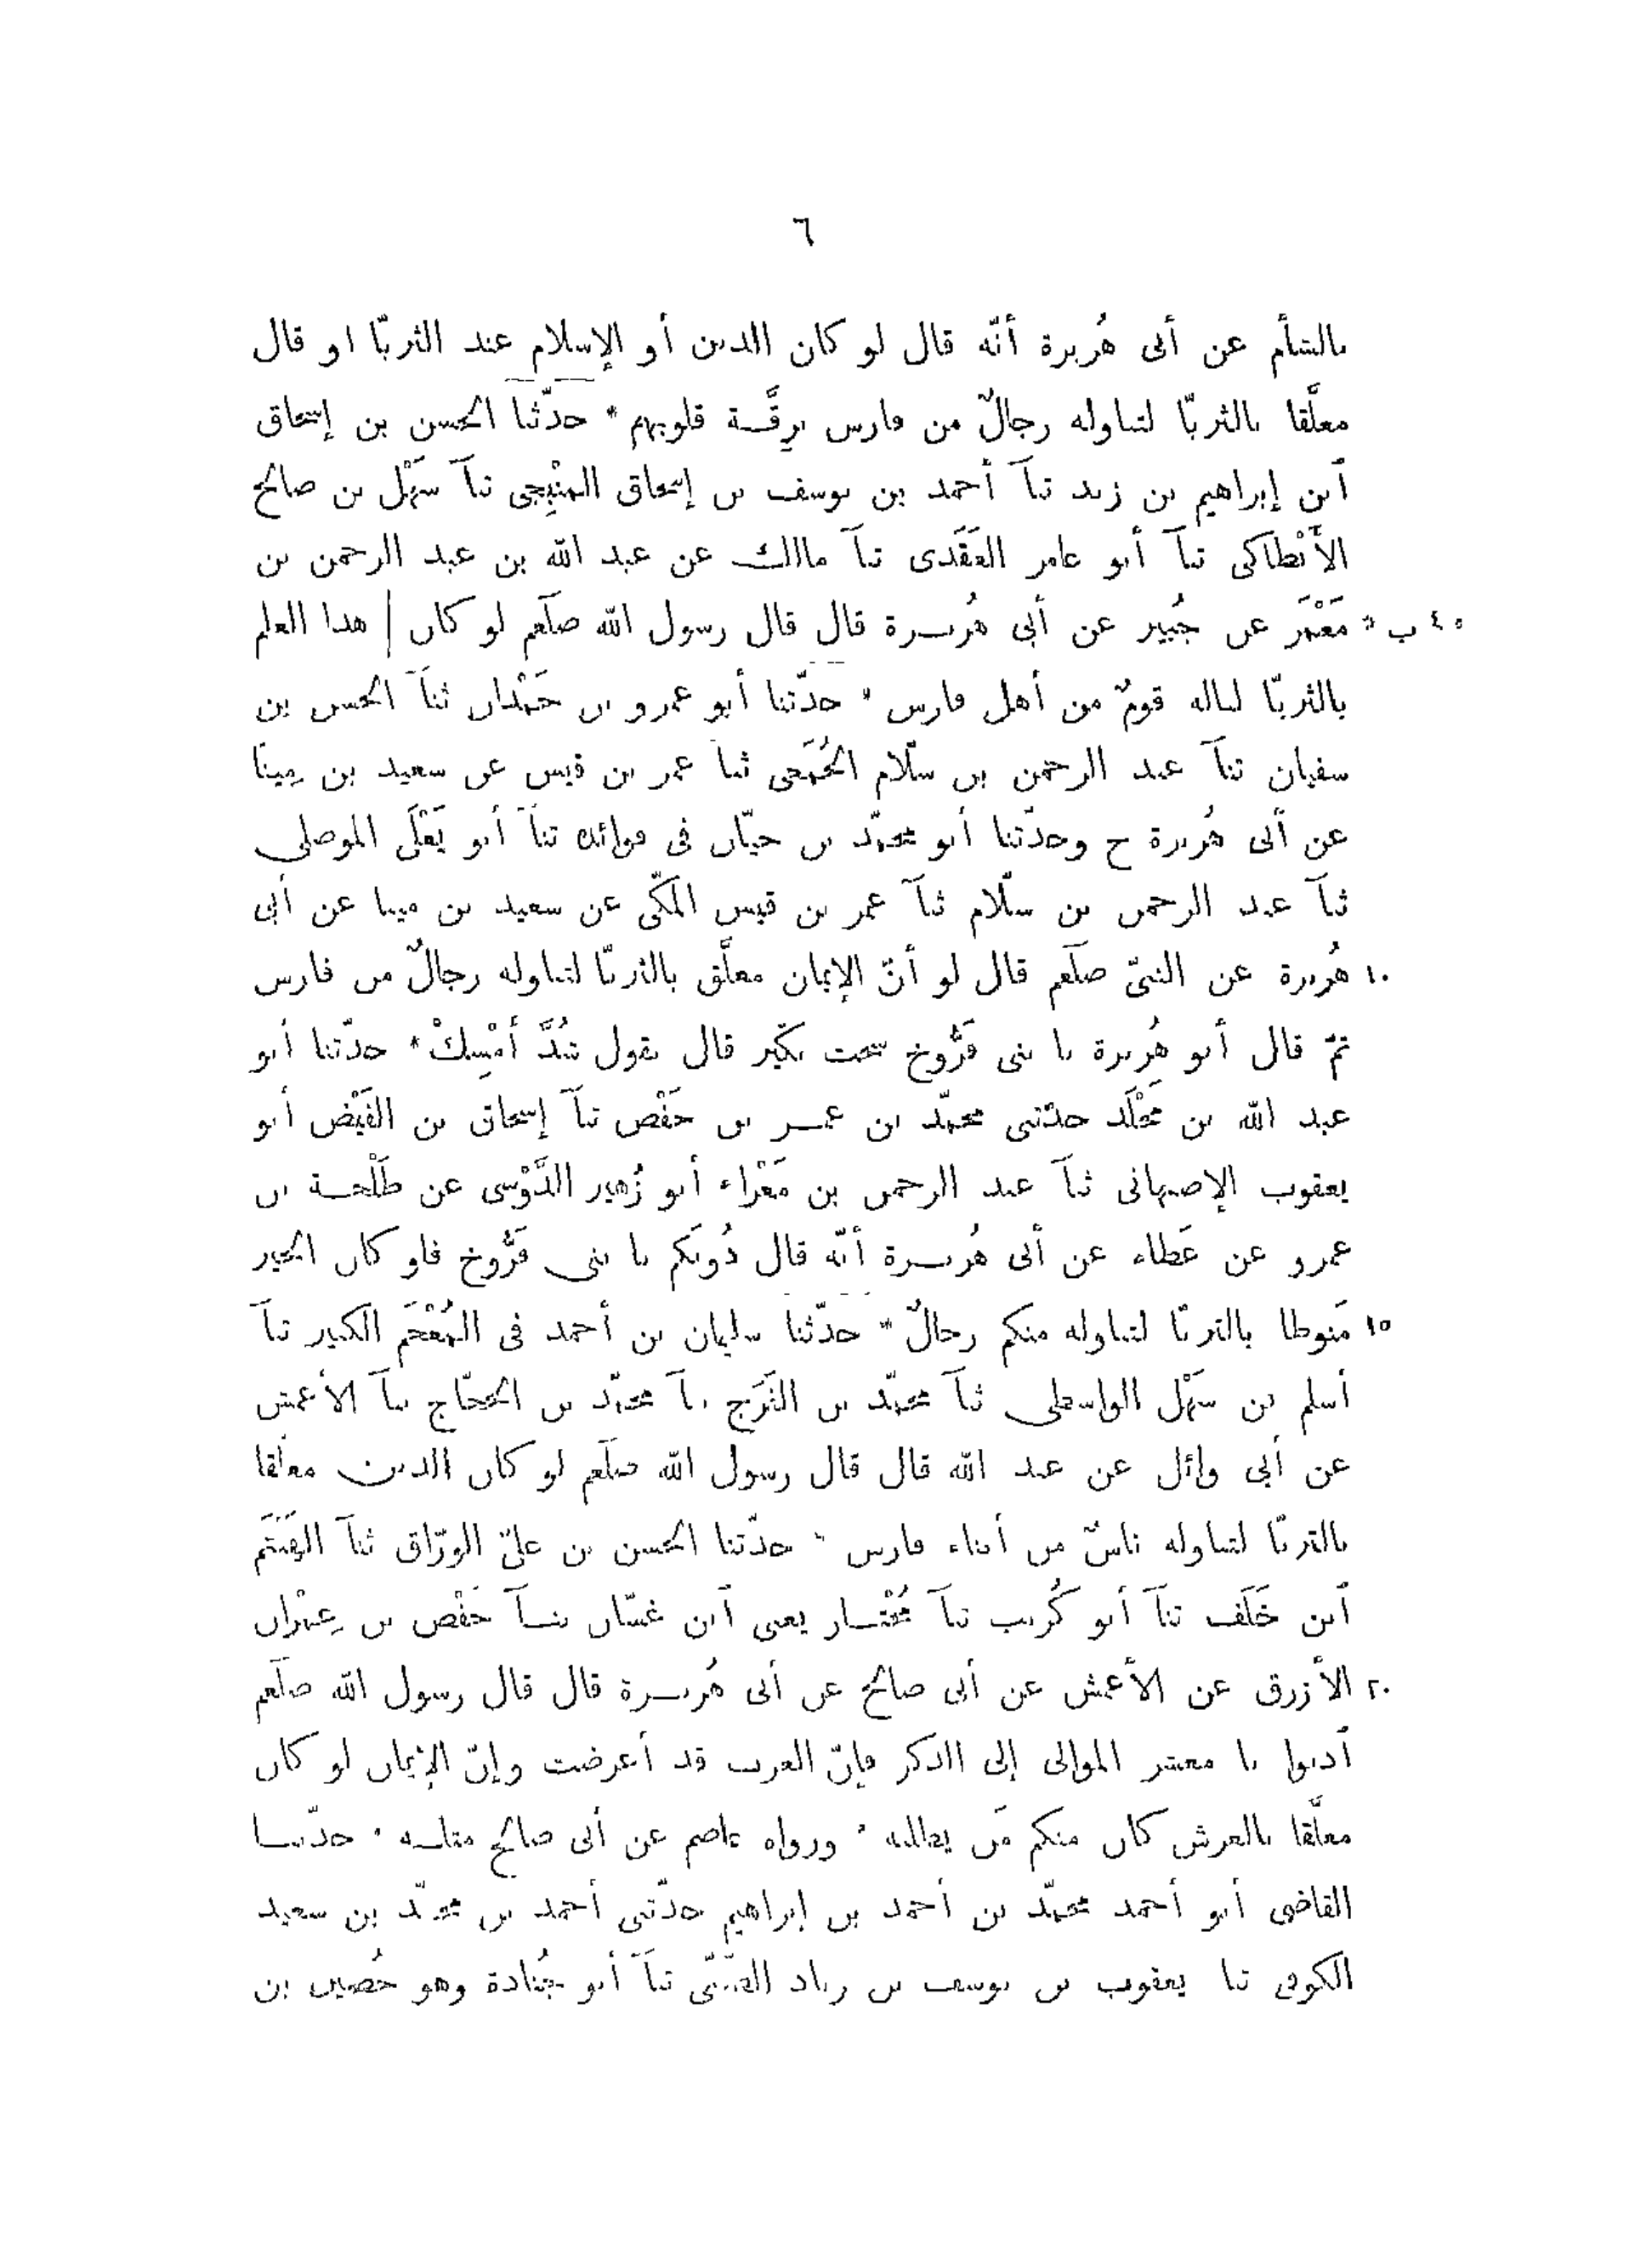 ٦
بالشأم عن أبى هُريرة أنّه قال لو كان الدين أو الإسلام عند الثريّا او قال
معلَّقا بالثريّا لتناوله رجالٌ من فارس برِقَّة قلوبهم * حدّثنا الحسن بن إسحاق
آبن إبراهيم بن زيد ثنآ أحمد بن يوسف بن إسحاق المنْبِجى ثنآ سَهْل بن صالح
الأَنْطاكى ثنآ أبو عامر العَقَدى ثنآ مالك عن عبد الله بن عبد الرحمن بن
٤٠ ب ٥ مَعْمَر عن جُبير عن أبى هُريرة قال قال رسول الله صلّعم لو كان | هذا العلم
بالثريّا لناله قومٌ من أهل فارس * حدّثنا أبو عمرو بن حَمْدان ثنآ الحسن بن
سفيان ثنآ عبد الرحمن بن سلّام الجُمَحى ثنا عمر بن قيس عن سعيد بن مِينا
عن أبى هُريرة ح وحدّثنا أبو محمّد بن حيّان فى فوائده ثنآ أبو يَعْلَى الموصلى
ثنآ عبد الرحمن بن سلّام ثنآ عمر بن قيس المكّى عن سعيد بن مينا عن أبى
١٠ هُريرة عن النبىّ صلّعم قال لو أنّ الإيمان معلَّق بالثريّا لتناوله رجالٌ من فارس
ثمّ قال أبو هُريرة يا بنى فَرُّوخ سحت بكير قال يقول شُدَّ أَمْسِكْ * حدّثنا أبو
عبد الله بن مَخْلَد حدّثنى محمّد بن عمر بن حَفْص ثنآ إسحاق بن الفَيْض أبو
يعقوب الإصبهانى ثنآ عبد الرحمن بن مَغْراء أبو زُهير الدَّوْسى عن طَلْحة بن
عمرو عن عَطاء عن أبى هُريرة أنّه قال دُونكم يا بنى فَرُّوخ فلو كان الخير
١٥ مَنوطا بالثريّا لتناوله منكم رجالٌ * حدّثنا سليمان بن أحمد فى المُعْجَم الكبير ثنآ
أسلم بن سَهْل الواسطى ثنآ محمّد بن الفَرَج ثنآ محمّد بن الحجّاج ثنآ الأعمش
عن أبى وائل عن عبد الله قال قال رسول الله صلّعم لو كان الدين معلّقا
بالثريّا لتناوله ناسٌ من أبناء فارس * حدّثنا الحسن بن علىّ الورّاق ثنآ الهَيْثَم
آبن خَلَف ثنآ أبو كُريب ثنآ مُخْتار يعنى آبن غسّان ثنآ حَفْص بن عِمْران
٢٠ الأزرق عن الأعمش عن أبى صالح عن أبى هُريرة قال قال رسول الله صلّعم
آدنوا يا معشر الموالى إلى الذكر فإنّ العرب قد أعرضت وإنّ الإيمان لو كان
معلَّقا بالعرش كان منكم مَن يطلبه * ورواه عاصم عن أبى صالح مثله * حدّثنا
القاضى أبو أحمد محمّد بن أحمد بن إبراهيم حدّثنى أحمد بن محمّد بن سعيد
الكوفى ثنا يعقوب بن يوسف بن زياد الضبّىّ ثنآ أبو جُنادة وهو حُصين بن